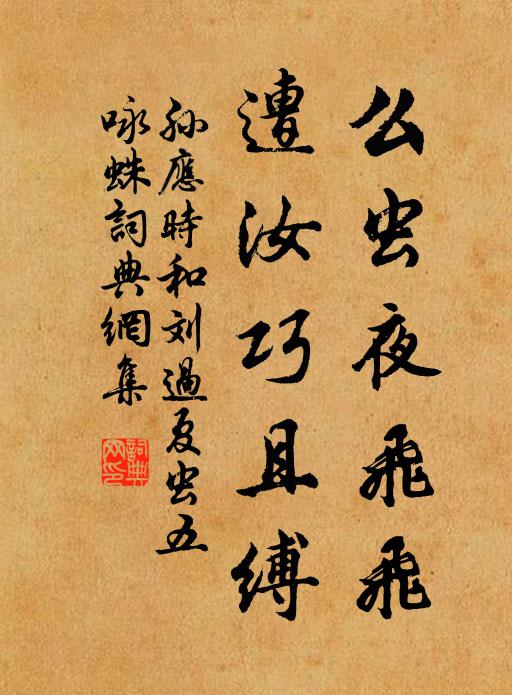 么虫夜飛飛
遭汝巧且縛
孙應時和刘過夏虫五
咏蛛詞典網集
詞典网印